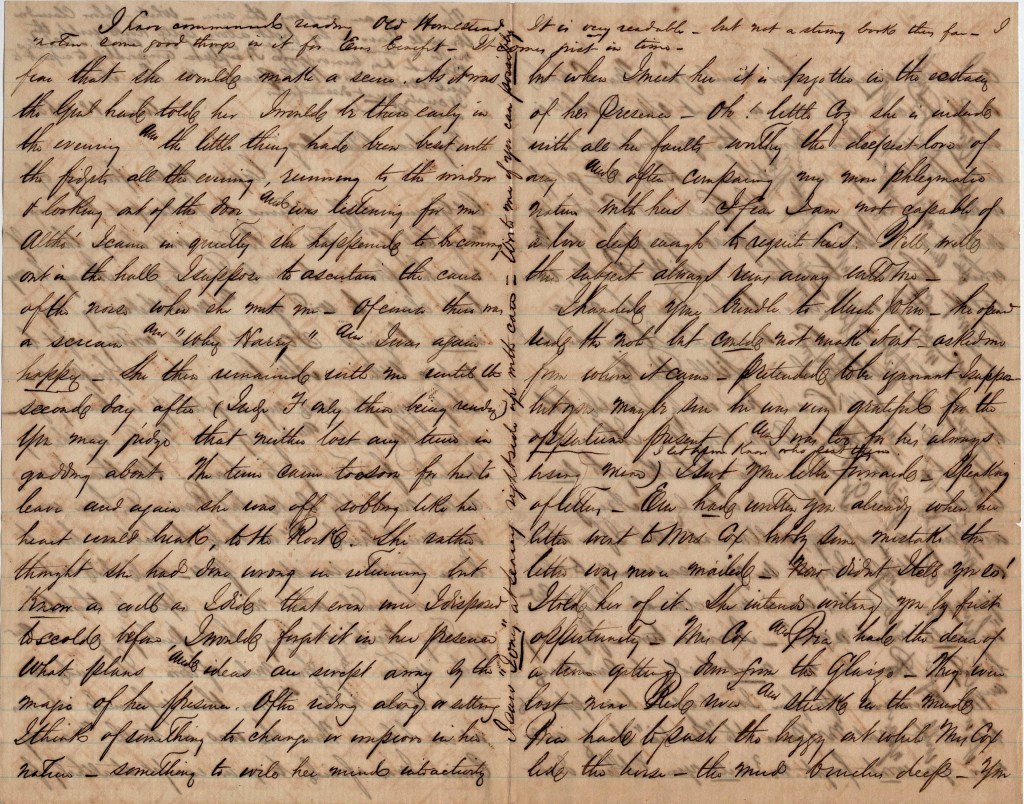 I have commenced reading Old Homestead It is very readable - but not a strong book thus far - I
notice some good things in it for Em's benefit - It comes just in time -
fear that she would make a scene. As it was
the Gen'l had told her I would be there early in
the evening and the little thing had been beset with
the fidgets all the evening, running to the window
& looking out of the door and was listening for me
Altho' I came in quietly she happened to be coming
out in the hall I suppose to ascertain the cause
of the noise when she met me - Of course there was
a scream and "Why Harry" and I was again
happy - She then remained with me until the
second day after (Judge F only then being ready)
You may judge that neither lost any time in
gadding about. The time came too soon for her to
leave and again she was off sobbing like her
heart would break, to the Rock. She rather
thought she had done wrong in returning but
knew as well as I did that even were I disposed
to scold before I would forget it in her presence
What plans and ideas are swept away by the
magic of her presence. Often riding along or sitting
I think of something to change or improve in her
nature - something to wile her mind into activity
I saw "Pony" at seating right side up with care - Write me if you can possibly
but when I meet her it is forgotten in the ecstasy
of her presence - Oh! little Coz she is indeed
with all her faults worthy the deepest love of
any and after comparing my more phlegmatic
nature with hers I fear I am not capable of
a love deep enough to requite hers. Well, well
the subject always runs away with me -
I handed your bundle to Uncle John - he opened
read the note but could not make it out - asked me
from whom it came - pretended to be ignorant I suppose
but you may be sure he was very grateful for the
opportune present (and I was too for he's always
I let him know who sent them
using mine) I sent your letter forward - Speaking
of letters - Em had written you already when her
letter went to Mrs Cox but by some mistake the
letter was never mailed - Now didn't I tell you so!
I told her of it. She intends writing you by first
opportunity - Mrs Cox and Brin had the deuce of
a time getting down from the Glaize - They were
lost near Red river and stuck in the mud
Brin had to push the buggy out while Mrs Cox
led the horse - the mud knee deep - You